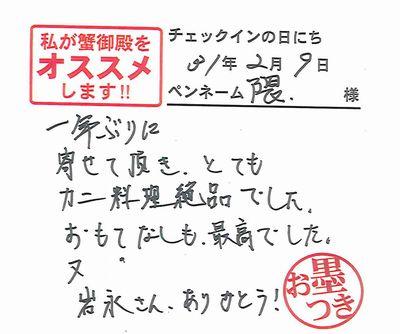 私が蟹御殿を
オススメ
します!!
チェックインの日にち
31年2月9日
ペンネーム 隈. 様
一年ぶりに
寄せて頂き、とても
カニ料理絶品でした。
おもてなしも、最高でした。
又
岩永さん、ありがとう!
お墨つき